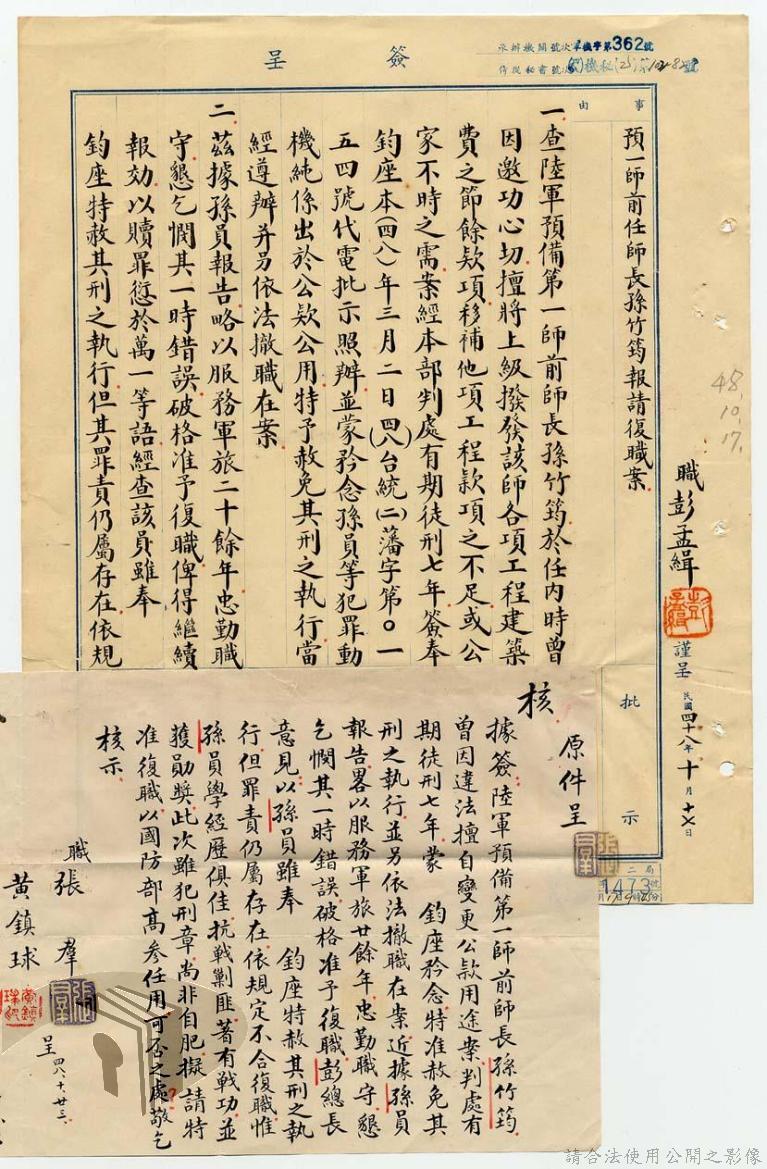 簽呈
承辦機關號次軍機字第362號
事由
預一師前任師長孫竹筠報請復職案
職彭孟緝
謹呈
民國四十八年十月十七日
48.10.17.
批示
一、查陸軍預備第一師前師長孫竹筠於任內時曾
因邀功心切擅將上級撥發該師各項工程建築
費之節餘款項移補他項工程款項之不足或公
家不時之需案經本部判處有期徒刑七年簽奉
鈞座本(四八)年三月二日(四八)台統(二)藩字第〇一
五四號代電批示照辦並蒙矜念孫員等犯罪動
機純係出於公款公用特予赦免其刑之執行當
經遵辦并另依法撤職在案
二、茲據孫員報告略以服務軍旅二十餘年忠勤職
守懇乞憫其一時錯誤破格准予復職俾得繼續
報効以贖罪愆於萬一等語經查該員雖奉
鈞座特赦其刑之執行但其罪責仍屬存在依規
二局
1473號
原件呈
核
據簽陸軍預備第一師前師長孫竹筠
曾因違法擅自變更公款用途案判處有
期徒刑七年蒙 鈞座矜念特准赦免其
刑之執行並另依法撤職在案近據孫員
報告畧以服務軍旅廿餘年忠勤職守懇
乞憫其一時錯誤破格准予復職彭總長
意見以孫員雖奉 鈞座特赦其刑之執
行但罪責仍屬存在依規定不合復職惟
孫員學經歷俱佳抗戰剿匪著有戰功並
獲勛獎此次雖犯刑章尚非自肥擬請特
准復職以國防部高參任用可否之處敬乞
核示
職張羣
黃鎮球
呈 四八、十、廿三、
請合法使用公開之影像